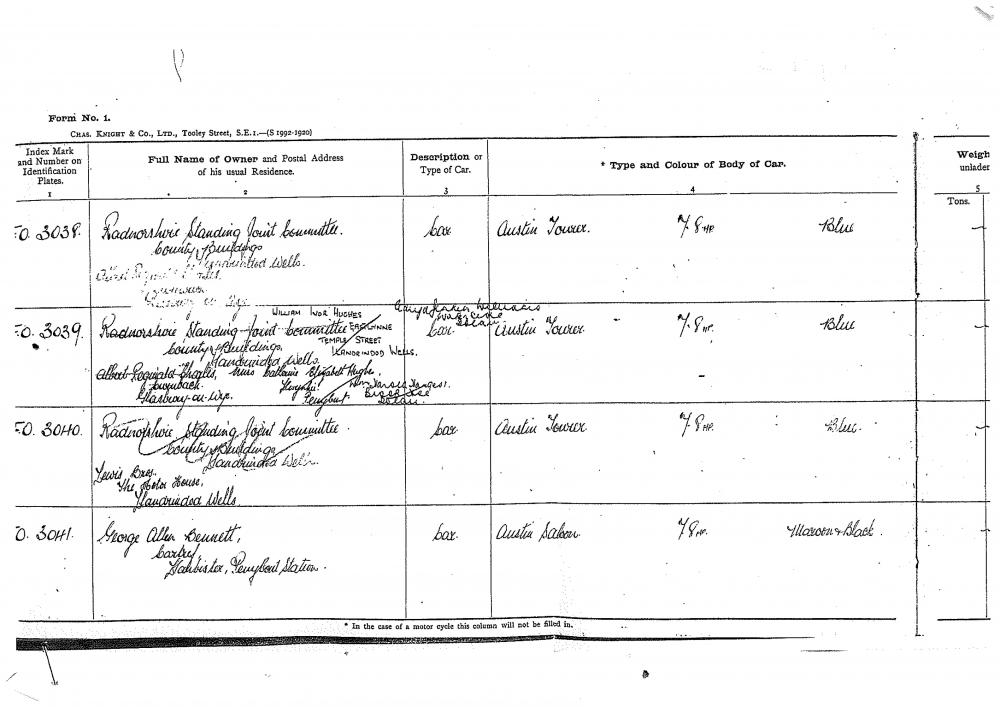 Form No. 1.
CHAS. KNIGHT & CO., LTD., Tooley Street, S.E.1.—(S 1992-1920)
Index Mark and Number on Identification Plates.
1
Full Name of Owner and Postal Address of his usual Residence.
2
Description or Type of Car.
3
* Type and Colour of Body of Car.
4
Weigh
unladen
5
Tons.
FO. 3038.
Radnorshire Standing Joint Committee.
County Buildings
Llandrindod Wells.
Car
Austin Tourer.
7/8 HP
Blue
FO. 3039.
WILLIAM IVOR HUGHES
Radnorshire Standing Joint Committee
TEMPLE STREET
LLANDRINDOD WELLS.
County Buildings.
Llandrindod Wells.
Albert Reginald Charles,
Glasbury-on-Wye.
Miss Catherine Elizabeth Hughes.
Penybont
Car.
Austin Tourer
7.8 HP.
Blue
FO. 3040.
Radnorshire Standing Joint Committee.
County Buildings
Llandrindod Wells.
Lewis Bros.
The Motor House,
Llandrindod Wells
Car.
Austin Tourer
7/8 HP.
Blue.
O. 3041.
George Allen Bennett,
Penybont Station.
Car.
Austin Saloon.
7/8 HP.
Maroon & Black.
* In the case of a motor cycle this column will not be filled in.